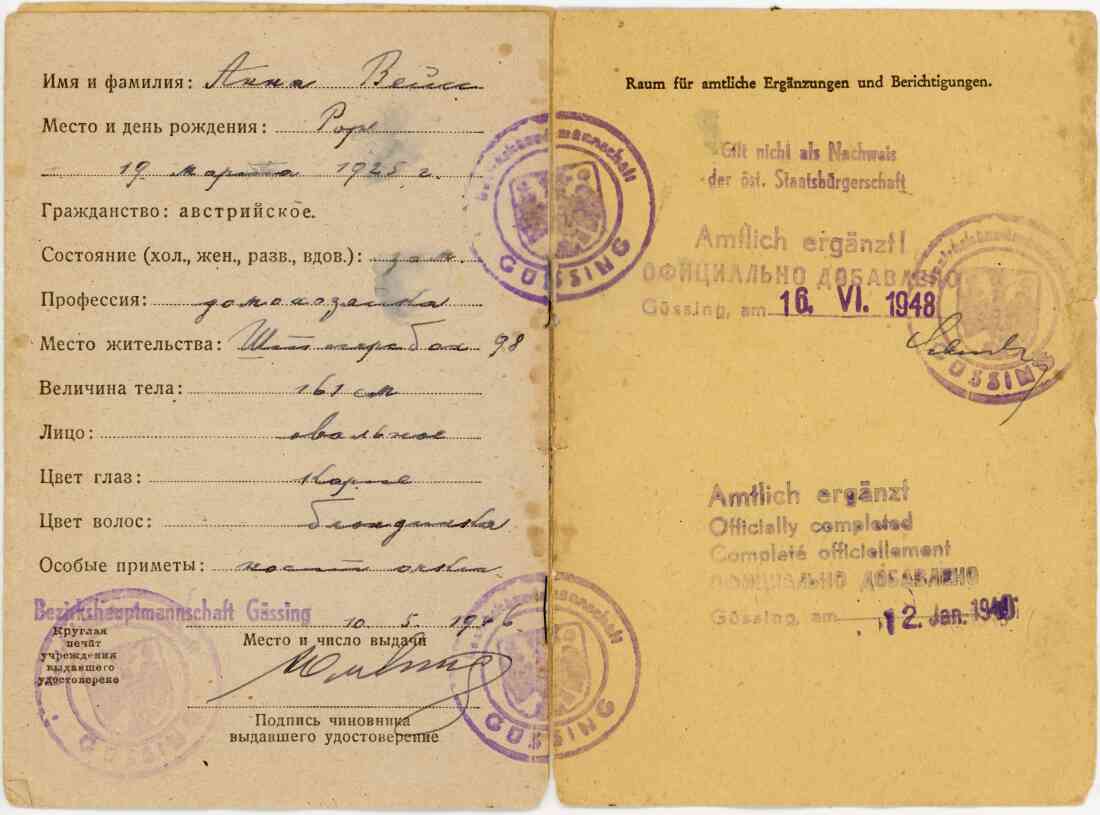 Имя и фамилия: Анна Вейс
Место и день рождения: Рор
19 марта 1925 г.
Гражданство: австрийское.
Состояние (хол., жен., разв., вдов.): зам.
Профессия: домохозяйка
Место жительства: 98
Величина тела: 161 см
Лицо: овальное
Цвет глаз: карие
Цвет волос: блондинка
Особые приметы: носит очки
Bezirkshauptmannschaft Güssing
10. 5. 1946
Место и число выдачи
Круглая
печат
учреждения
выдавшего
удостоверено
Подпись чиновника
выдавшего удостоверение
Bezirkshauptmannschaft
GÜSSING
Bezirkshauptmannschaft
GÜSSING
GÜSSING
Raum für amtliche Ergänzungen und Berichtigungen.
Gilt nicht als Nachweis
der öst. Staatsbürgerschaft
Amtlich ergänzt!
ОФИЦИАЛЬНО ДОБАВЛЕНО
Güssing, am 16. VI. 1948
Bezirkshauptmannschaft
GÜSSING
Amtlich ergänzt
Officially completed
Complété officiellement
ОФИЦИАЛЬНО ДОБАВЛЕНО
Güssing, am 12. Jan. 1949